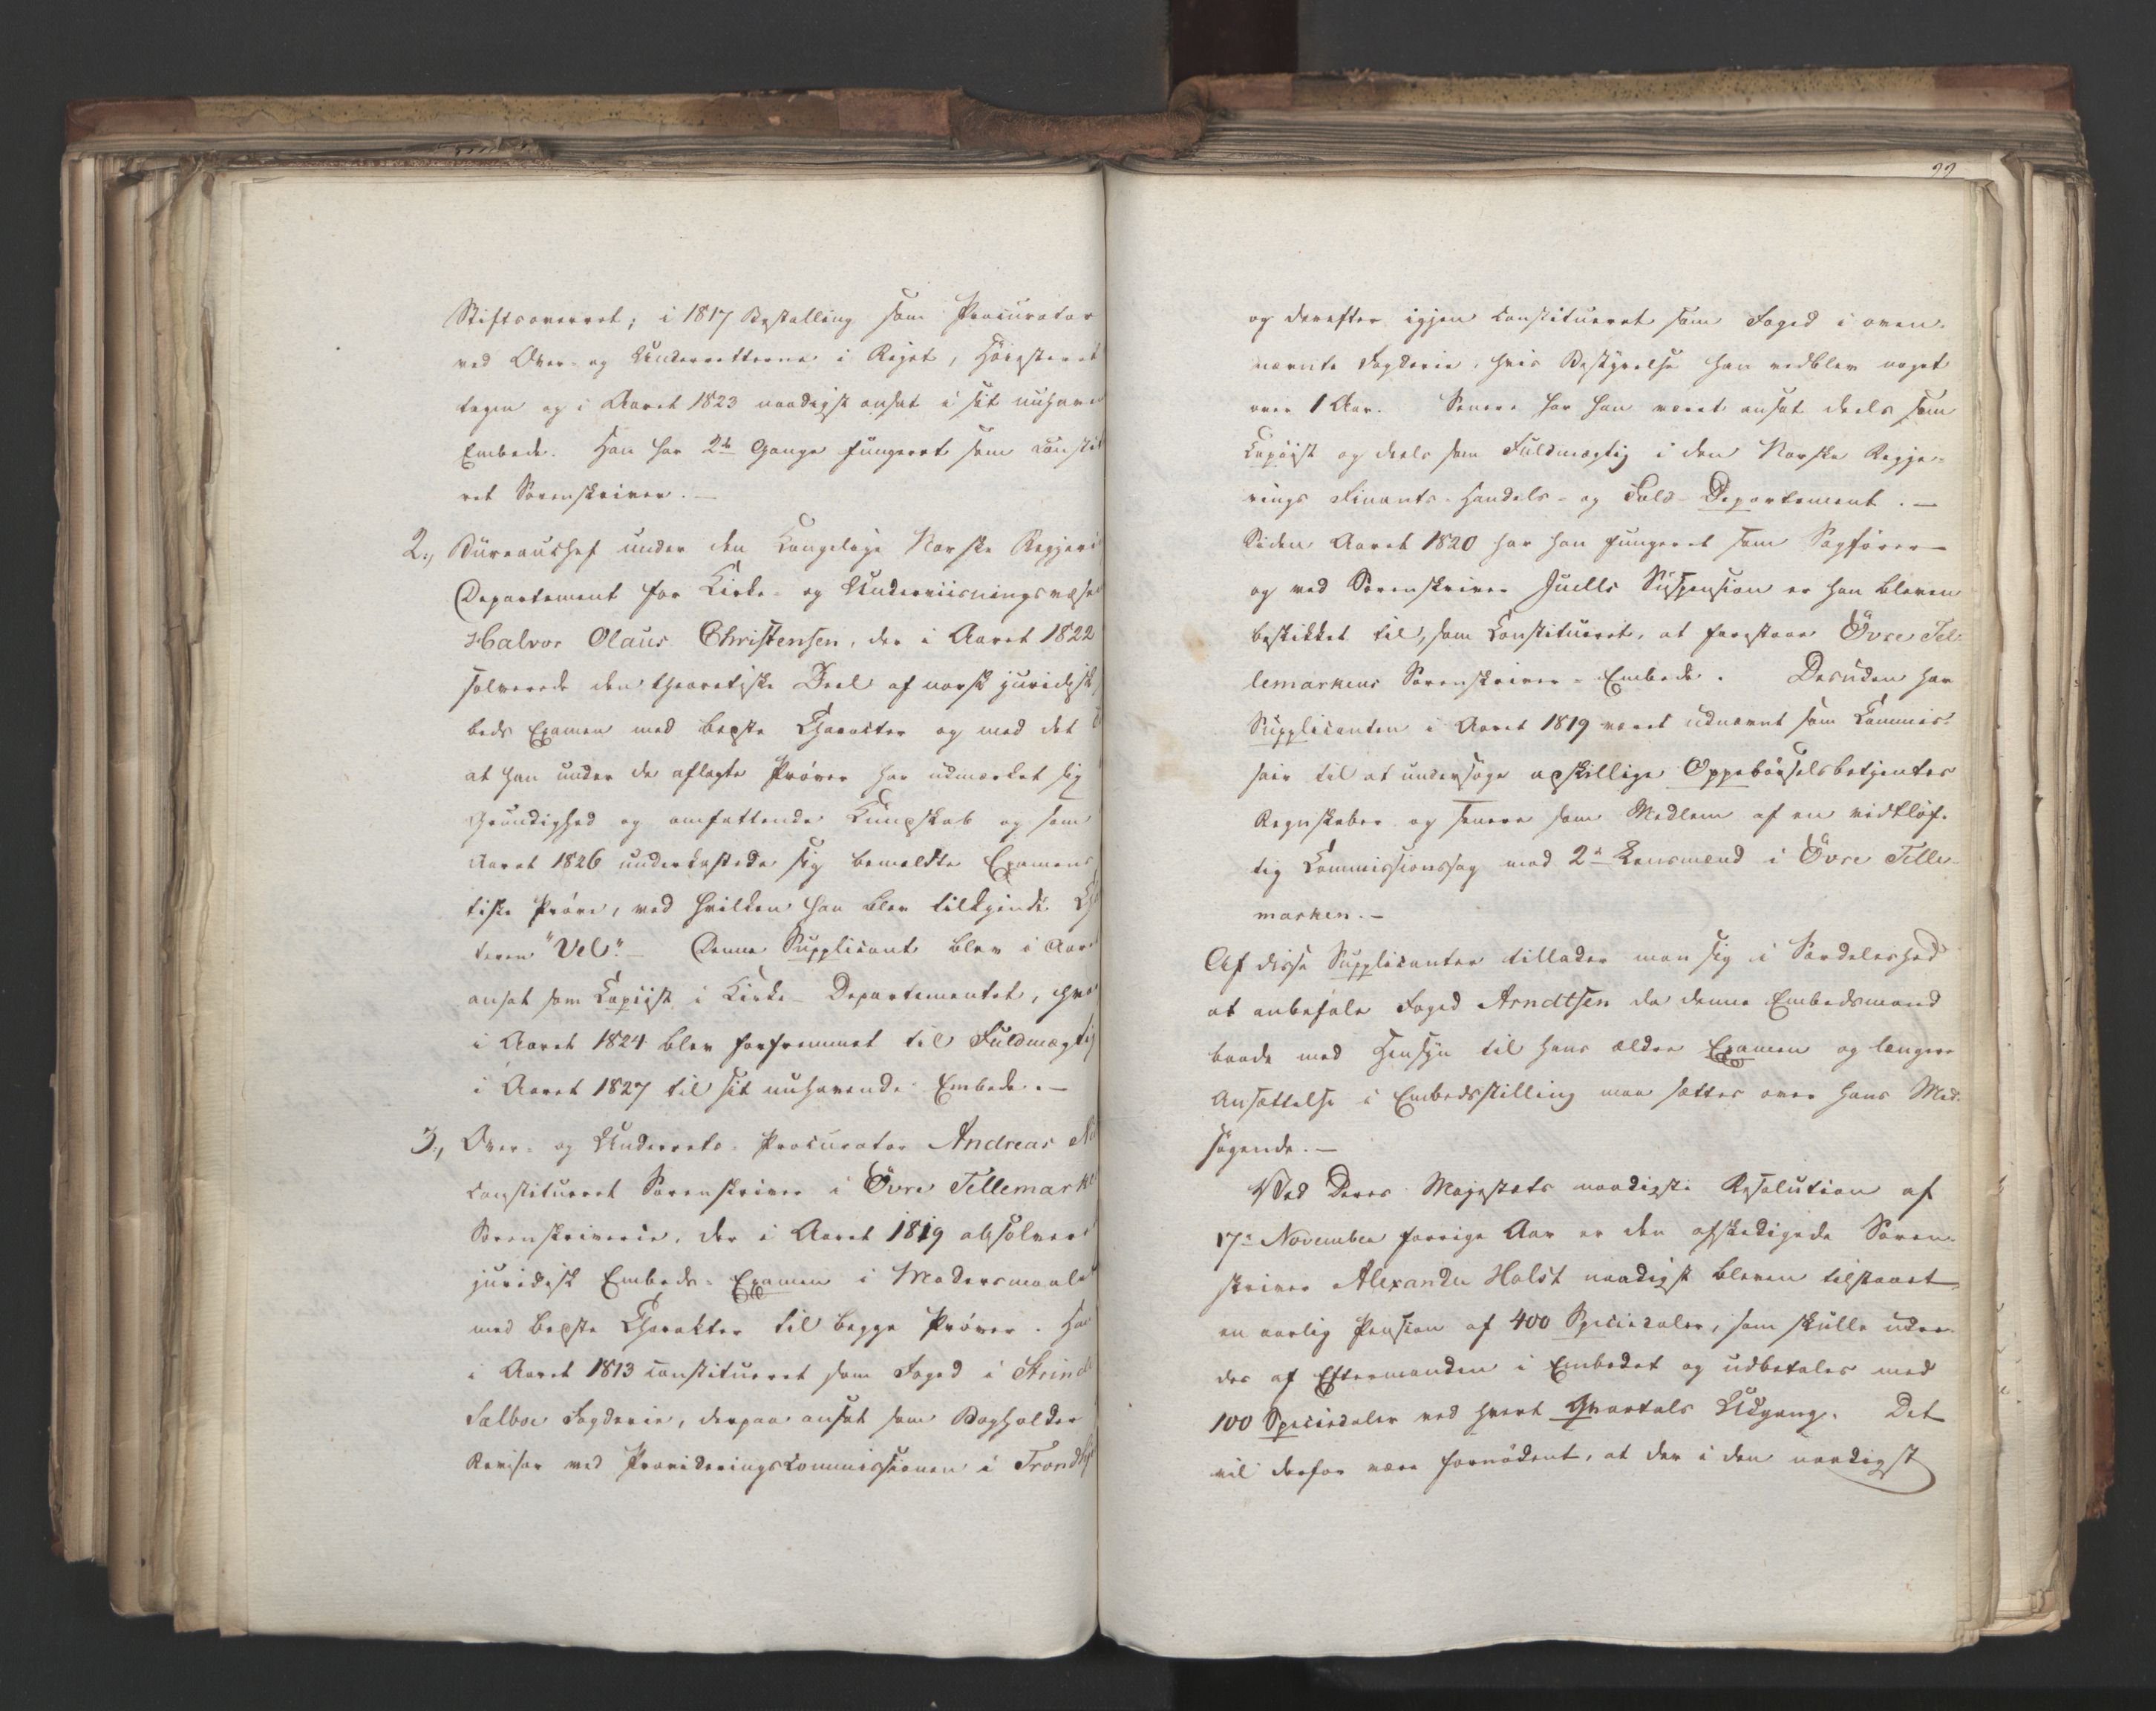 Stiftsoverret; i 1817 Bestalling som Procurator
ved Over- og Underretterne i Riget, Höiesteret
tagen og i Aaret 1823 naadigst ansat i sit nuhave
Embede. Han har 2de Gange fungeret som Constit
ret Sorenskriver. —
2., Büreauchef under den Kongelige Norske Regjeri
Departement for Kirke- og Underviisningsvæse
Halvor Olaus Christensen, der i Aaret 1822
solverede den theoretiske Deel af norsk juridisk
beds Examen med bedste Charakter og med det
at han under de aflagte Prøver har udmærket sig
Grundighed og omfattende Kundskab og som
Aaret 1826 underkastede sig bemeldte Examens
tiske Prøve, ved hvilken han blev tilkjendt Cha
teren "Vel". — Denne Supplicant blev i Aar
ansat som Copiist i Kirke-Departementet, hvor
i Aaret 1824 blev forfremmet til Fuldmægtig
i Aaret 1827 til sit nuhavende Embede. —
3., Over- og Underrets-Procurator Andreas
Constitueret Sorenskriver i Övre Tellemarke
Sorenskriverie, der i Aaret 1819 absolvere
juridisk Embeds-Examen i Modersmaalet
med bedste Charakter til begge Prøver. Han
i Aaret 1813 constitueret som Foged i Strind
Salboe Fogderie, derpaa ansat som Bogholder
Revisor ved Provideringscommissionen i Trondhj
22
og derefter igjen constitueret som Foged i oven-
nævnte Fogderie, hvis Bestyrelse han vedblev noget
over 1 Aar. Senere har han været ansat deels som
Copiist og deels som Fuldmægtig i den Norske Regje-
rings Finants- Handels- og Told-Departement. —
Siden Aaret 1820 har han fungeret som Sagfører —
og ved Sorenskriver Juells Suspension er han bleven
beskikket til, som Constitueret, at forestaae Övre Tel-
lemarkens Sorenskriver-Embede. Desuden har
Supplicanten i Aaret 1819 været udnævnt som Commis-
sair til at undersøge adskillige Oppebörselsbetjentes
Regnskaber og senere som Medlem af en vidtløf-
tig Commissionssag mod 2de Lensmænd i Övre Telle-
marken. —
Af disse Supplicanter tillader man sig i Særdeleshed
at anbefale Foged Arndtsen da denne Embedsmand
baade med Hensyn til hans ældre Examen og længere
Ansættelse i Embedsstilling maa sættes over hans Med-
søgende. —
Ved Deres Majestæts naadigste Resolution af
17de November forrige Aar er den afskedigede Soren-
skriver Alexander Holst naadigst bleven tilstaaet
en aarlig Pension af 400 Speciedaler, som skulle udre-
des af Eftermanden i Embedet og udbetales med
100 Speciedaler ved hvert Qvartals Udgang. Det
vil derfor være fornödent, at der i den naadigst